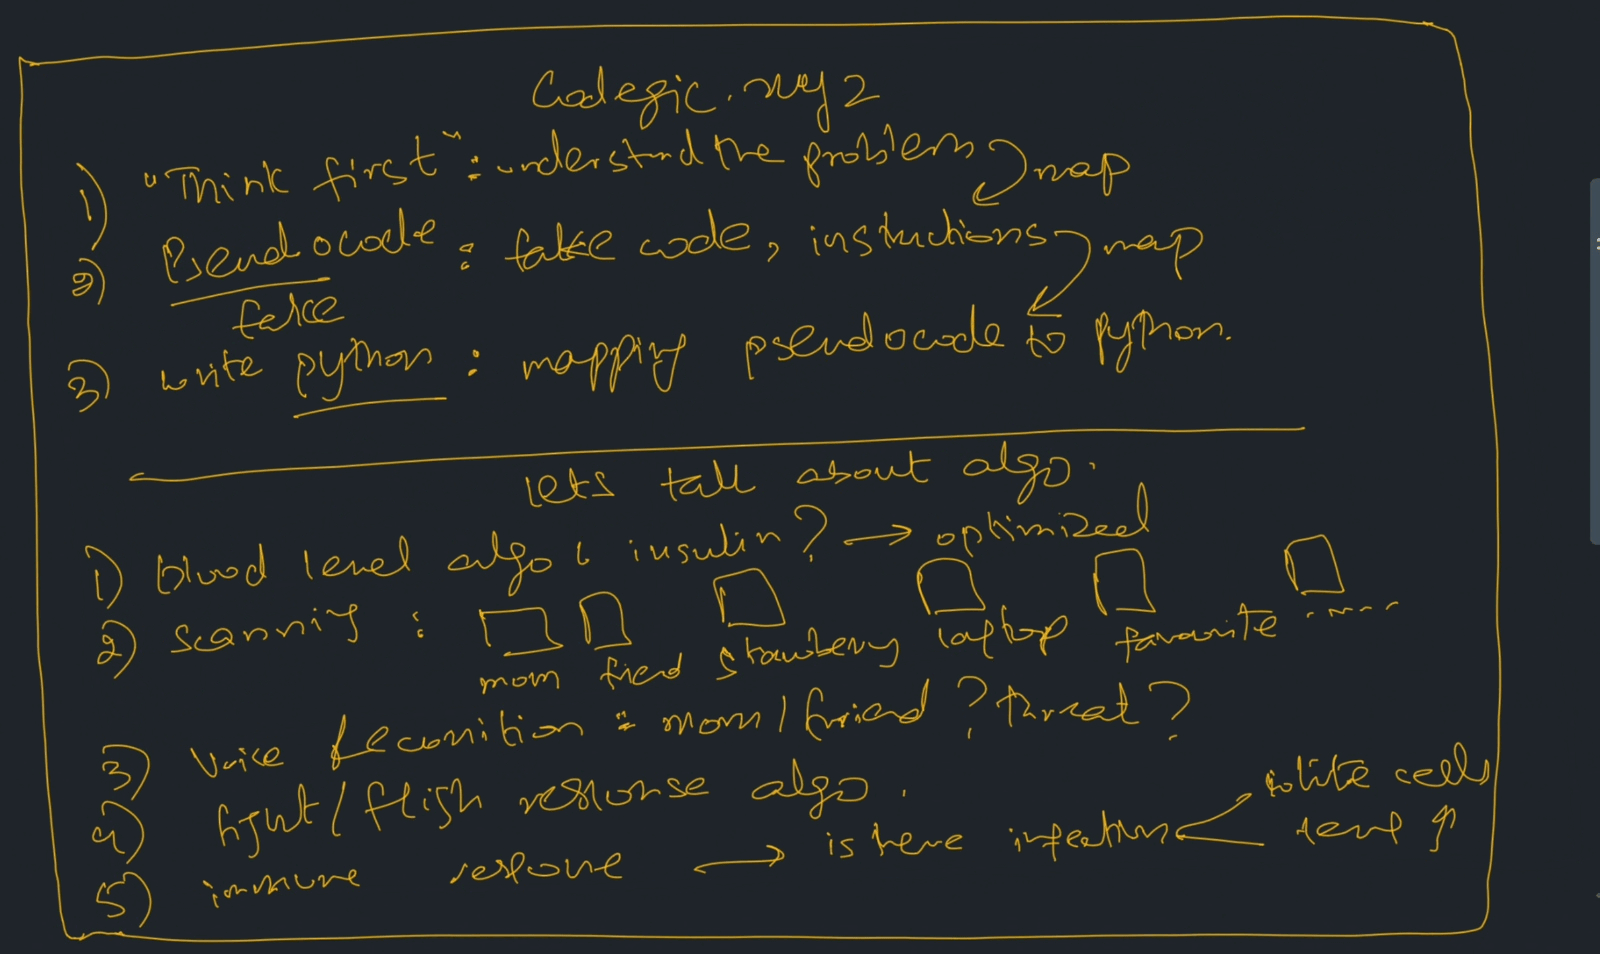 Codegic.xyz
1) "Think first" : understand the problem map
2) Pseudocode : fake code, instructions map
fake
3) write python : mapping pseudocode to python.
lets talk about algo.
1) blood level algo : insulin? → optimized
2) scanning :
mom friend strawberry laptop favourite .....
3) Voice Recornition : mom / friend ? threat ?
4) fight / fligh response algo.
5) immune response → is there infection white cells
temp ↑